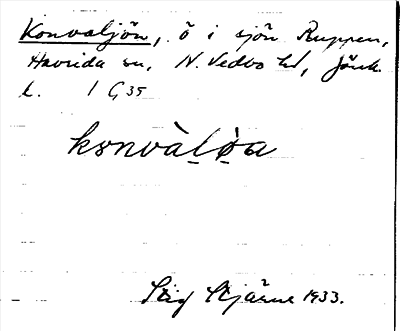 Konvaljön, ö i sjön Ruppen,
Haurida sn, N. Vedbo hd, Jönk.
l. 1 G35
kɔnvàl̠ø̠a
Stig Stjärne 1933.